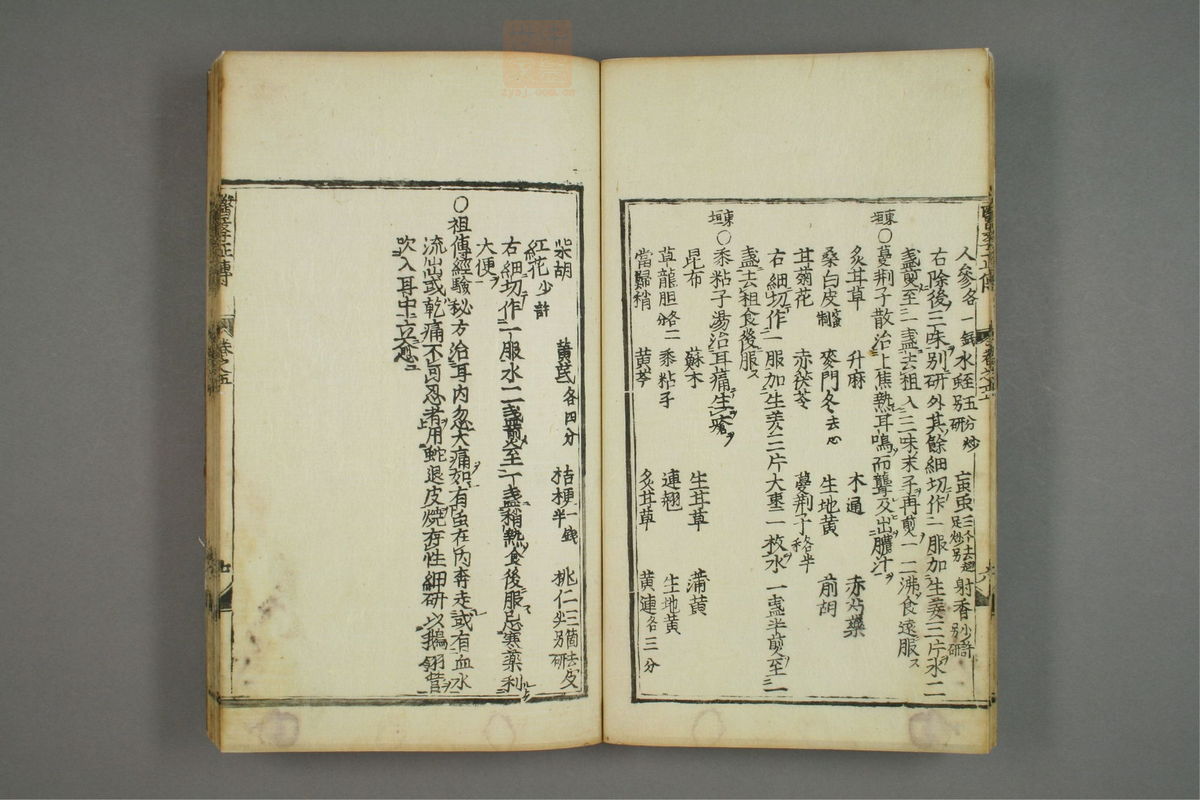 人參各一錢 水蛭五分炒別研 䖟虫三个去翅足炒別 射香少許別研
右除後三味別研外其餘細切作一服加生姜三片水二
盞煎至一盞去粗入三味末子再煎一二沸食遠服
東垣○蔓荆子散治上焦熱耳鳴而聾及出膿汁
炙耳草 升麻 木通 赤芍藥
桑白皮蜜制 麥門冬去心 生地黄 前胡
耳菊花 赤茯苓 蔓荆子各半
右細切作一服加生姜三片大棗一枚水一盞半煎至一
盞去粗食後服
東垣○黍粘子湯治耳痛生瘡
昆布 蘇木 生耳草 蒲黄
草龍胆各二分 黍粘子 連翹 生地黄
當歸稍 黄芩 炙耳草 黄連各三分
柴胡 黄芪各四分 桔梗一錢半 桃仁三箇去皮尖別研
紅花少許
右細切作一服水二盞煎至一盞稍熱食後服忌寒藥利
大便
○祖傳經驗秘方治耳内忽大痛如有虫在内奔走或有血水
流出或乾痛不可忍者用蛇退皮燒存性細研以鵝翎管
吹入耳中立愈
醫學正傳
卷之五